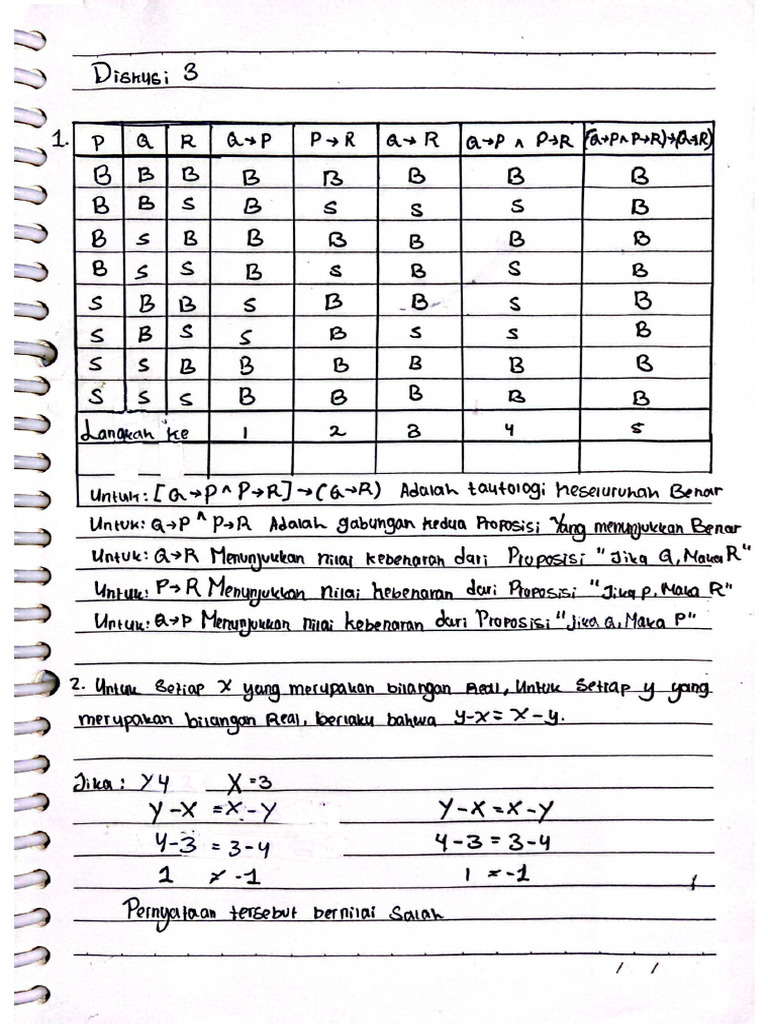 Diskusi 3
1. P Q R Q→P P→R Q→R Q→P ∧ P→R (Q→P∧P→R)→(Q→R)
B B B B B B B B
B B S B S S S B
B S B B B B B B
B S S B S B S B
S B B S B B S B
S B S S B S S B
S S B B B B B B
S S S B B B B B
Langkah ke 1 2 3 4 5
Untuk: [Q→P ∧ P→R]→(Q→R) Adalah tautologi keseluruhan Benar
Untuk: Q→P ∧ P→R Adalah gabungan kedua Proposisi Yang menunjukkan Benar
Untuk: Q→R Menunjukkan nilai kebenaran dari Proposisi "Jika Q, Maka R"
Untuk: P→R Menunjukkan nilai kebenaran dari Proposisi "Jika P, Maka R"
Untuk: Q→P Menunjukkan nilai kebenaran dari Proposisi "Jika Q, Maka P"
2. Untuk Setiap X yang merupakan bilangan Real, Untuk Setiap y yang
merupakan bilangan Real, berlaku bahwa y-x = x-y.
Jika: Y4 X=3
Y-X = X-Y Y-X = X-Y
4-3 = 3-4 4-3 = 3-4
1 ≠ -1 1 ≠ -1
Pernyataan tersebut bernilai Salah
/ /